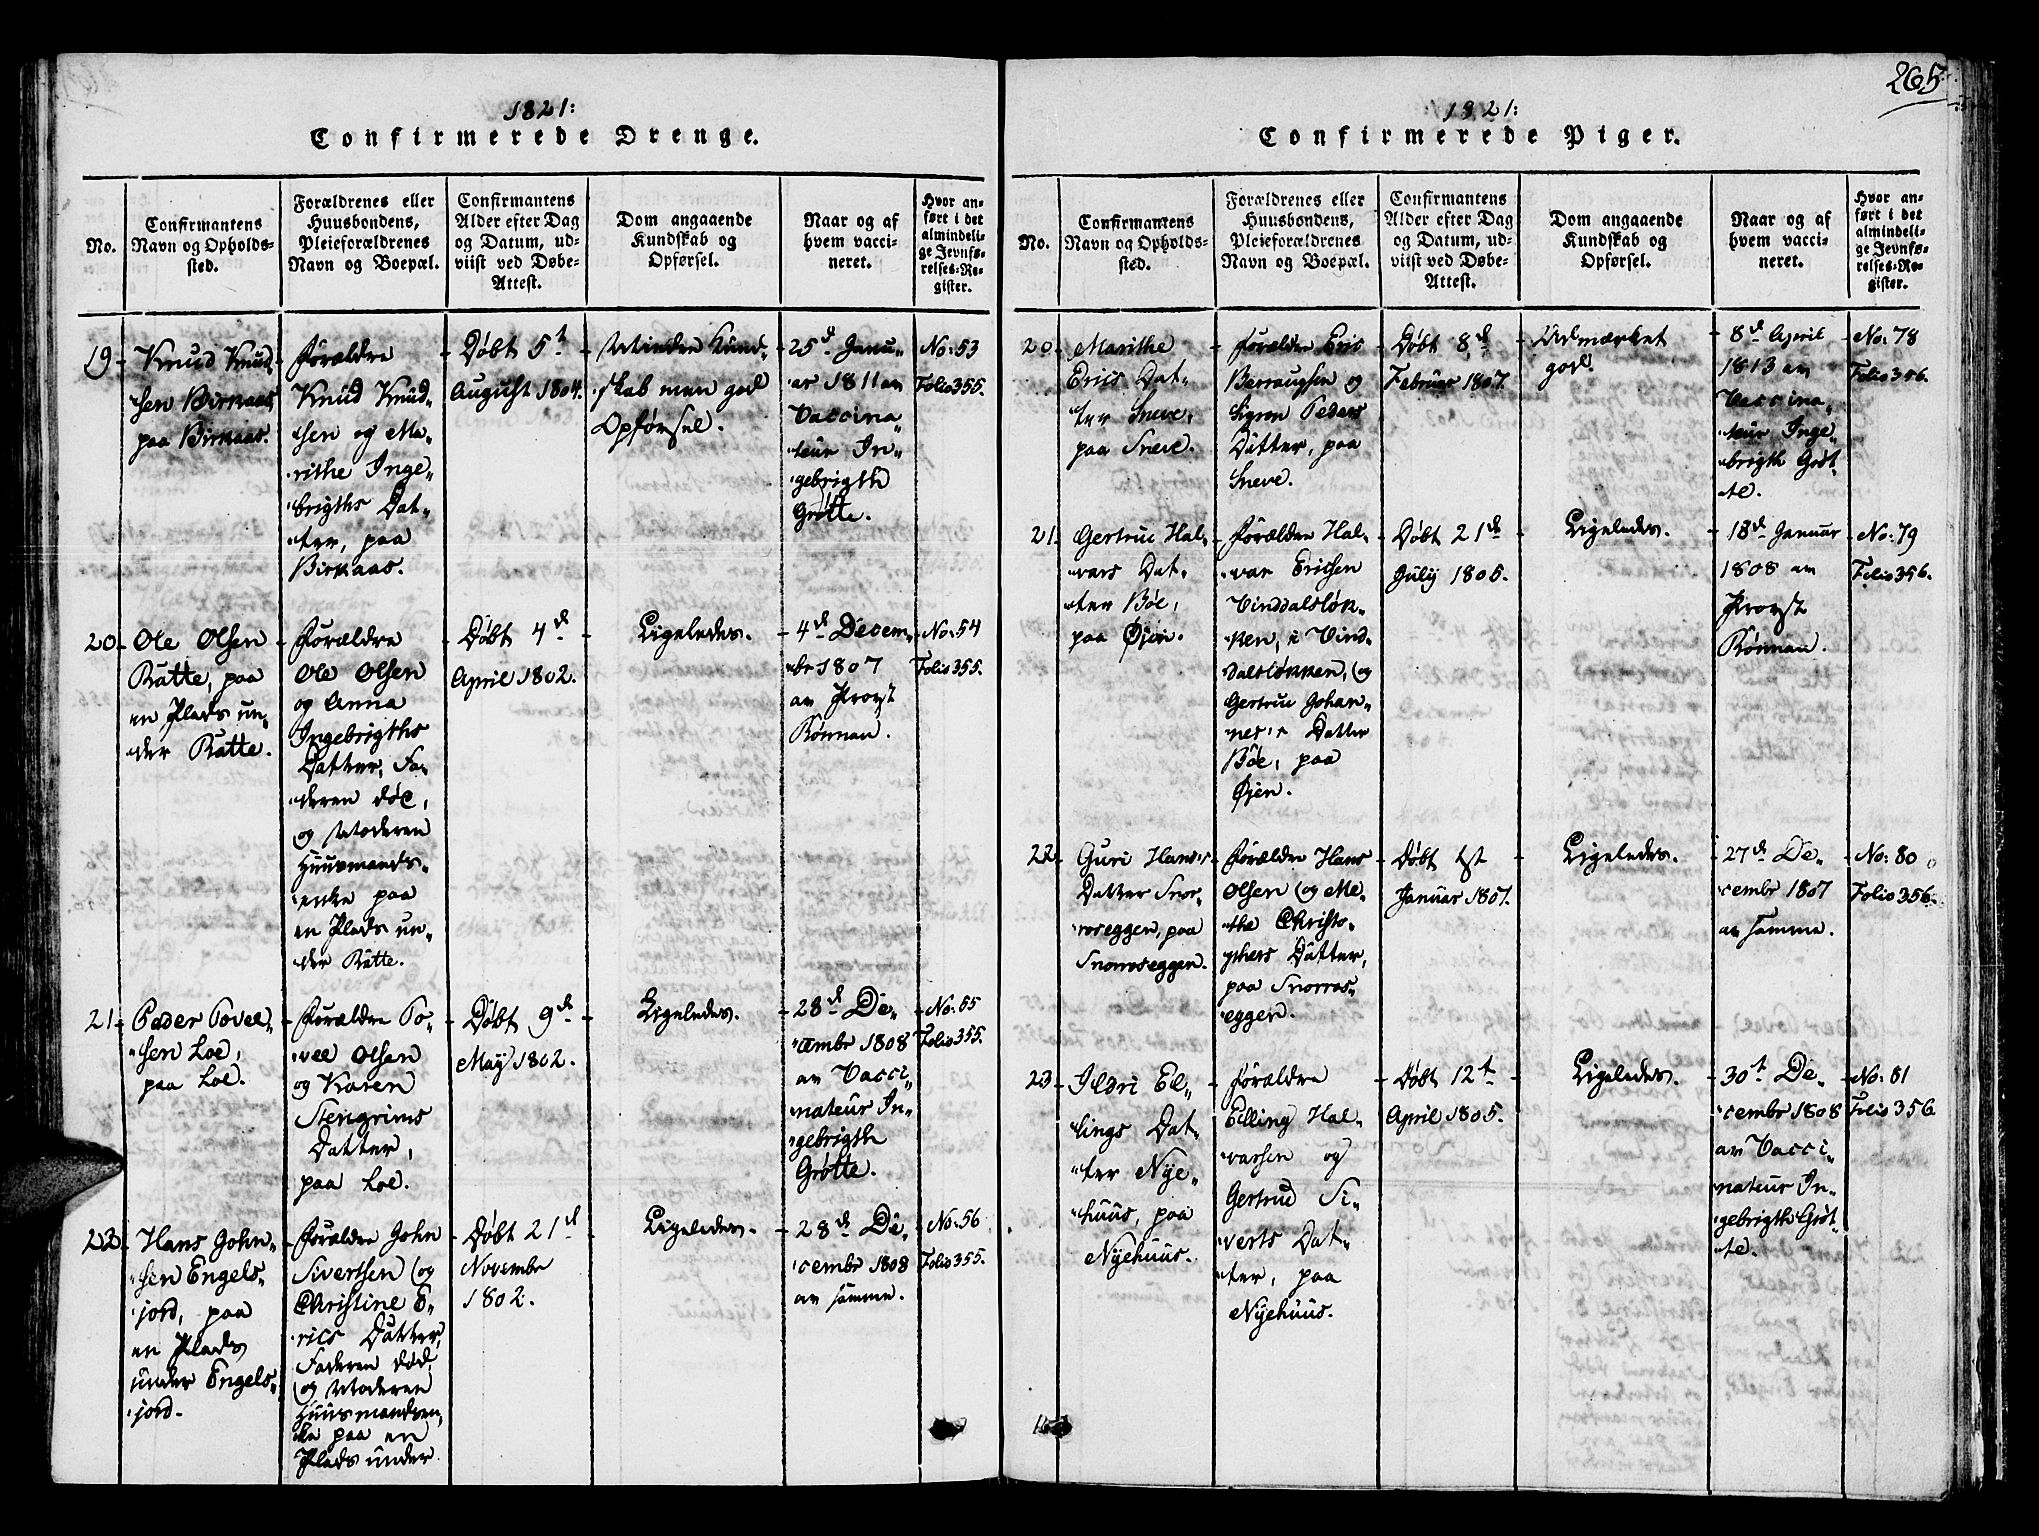 265.
1821:
Confirmerede Drenge.
No.
Confirmantens
Navn og Opholds-
sted.
Forældrenes eller
Huusbondens,
Pleieforældrenes
Navn og Boepæl.
Confirmantens
Alder efter Dag
og Datum, ud-
viist ved Døbe-
Attest.
Dom angaaende
Kundskab og
Opførsel.
Naar og af
hvem vacci-
neret.
Hvor an-
ført i det
almindeli-
ge Jevnfø-
relses-Re-
gister.
19
Knud Knud-
sen Birkaas
paa Birkaas.
Forældre
Knud Knud-
sen og Ma-
rithe Inge-
brigths Dat-
ter, paa
Birkaas.
Døbt 5t
August 1804.
Mindre Kund-
skab men god
Opførsel.
25d Janu-
ar 1811 av
Vaccina-
teur In-
gebrigth
Grøtte.
No: 53
Folio 355.
20
Ole Olsen
Ratte, paa
en Plads un-
der Ratte.
Forældre
Ole Olsen
og Anna
Ingebrigths
Datter, Fa-
deren død,
og Moderen
Huusmands-
enke paa
en Plads un-
der Ratte.
Døbt 4d
April 1802.
Ligeledes.
4d Decem-
br 1807
av Provst
Rønnau.
No: 54
Folio 355.
21
Peder Povel-
sen Loe,
paa Loe.
Forældre Po-
vel Olsen
og Karen
Stengrims
Datter,
paa Loe.
Døbt 9d
May 1802.
Ligeledes.
28d De-
cembr 1808
av Vacci-
nateur In-
gebrigth
Grøtte.
No: 55
Folio 355.
22
Hans John-
sen Engels-
jord, paa
en Plads
under Engels-
jord.
Forældre John
Sivertsen og
Christine E-
rics Datter,
Faderen død,
og Moderen
Huusmandsen-
ke paa en
Plads under
Døbt 21d
Novembr
1802.
Ligeledes.
28d De-
cembr 1808
av samme.
No: 56
Folio 355.
1821:
Confirmerede Piger.
No.
Confirmantens
Navn og Opholds-
sted.
Forældrenes eller
Huusbondens,
Pleieforældrenes
Navn og Boepæl.
Confirmantens
Alder efter Dag
og Datum, ud-
viist ved Døbe-
Attest.
Dom angaaende
Kundskab og
Opførsel.
Naar og af
hvem vacci-
neret.
Hvor an-
ført i det
almindeli-
ge Jevnfø-
relses-Re-
gister.
20
Marithe
Erics Dat-
ter Sneve,
paa Sneve.
Forældre Eric
Berraugsen og
Sigron Peders
Datter, paa
Sneve.
Døbt 8d
Februar 1807.
Udmærket
god.
8d April
1813 av
Vaccina-
teur Inge-
brigth Grøt-
te.
No: 78
Folio 356.
21
Gertrue Hal-
vars Dat-
ter Bøe,
paa Øjen.
Forældre Hal-
var Ericsen
Vinddalsløk-
ken, i Vind-
dalsløkken, og
Gertrue Johan-
nes's Datter
Bøe, paa
Øjen.
Døbt 21d
July 1805.
Ligeledes.
18d Januar
1808 av
Provst
Rønnau.
No: 79
Folio 356.
22
Guri Hans's
Datter Snor-
roseggen, paa
Snorroseggen.
Forældre Hans
Olsen og Me-
the Christo-
phers Datter,
paa Snorros-
eggen.
Døbt 1st
Januar 1807.
Ligeledes.
27d De-
cembr 1807
av samme.
No: 80
Folio 356.
23
Ildri El-
lings Dat-
ter Nye-
huus, paa
Nyehuus.
Forældre
Elling Hal-
varsen og
Gertrud Si-
verts Dat-
ter, paa
Nyehuus.
Døbt 12t
April 1805.
Ligeledes.
30t De-
cembr 1808
av Vacci-
nateur In-
gebrigth Grøt-
te.
No: 81
Folio 356